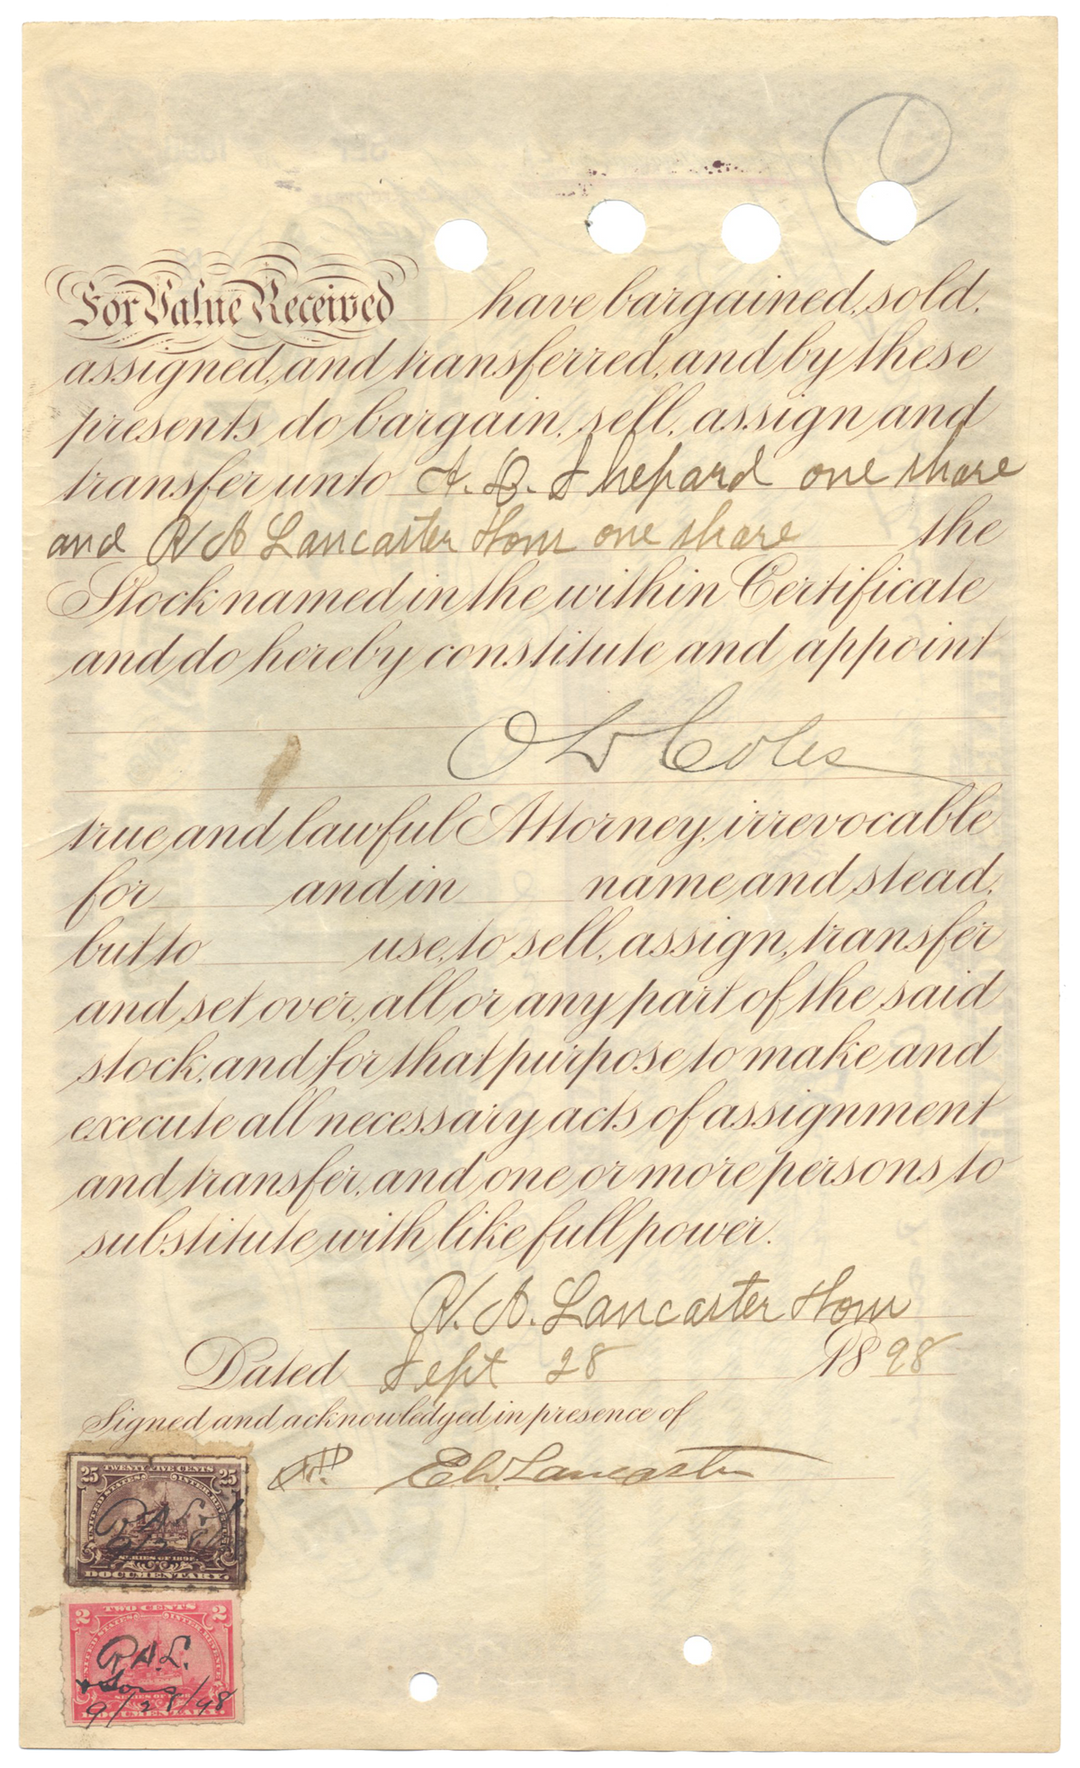 For Value Received have bargained, sold,
assigned, and transferred, and by these
presents do bargain, sell, assign and
transfer unto A. D. Shepard one share
and R A Lancaster one share the
Stock named in the within Certificate
and do hereby constitute and appoint
Coles
true and lawful Attorney, irrevocable
for and in name and stead,
but to use, to sell, assign, transfer
and set over, all or any part of the said
stock, and for that purpose to make and
execute all necessary acts of assignment
and transfer, and one or more persons to
substitute with like full power.
R. A. Lancaster
Dated Sept 28 1898
Signed and acknowledged in presence of
E W Lancaster
25 TWENTY FIVE CENTS 25
UNITED STATES INTER. REVENUE
SERIES OF 1898
DOCUMENTARY.
2 TWO CENTS 2
UNITED STATES INTER. REVENUE
R. A. L.
& Sons
SERIES OF 1898
9/28/98
DOCUMENTARY.